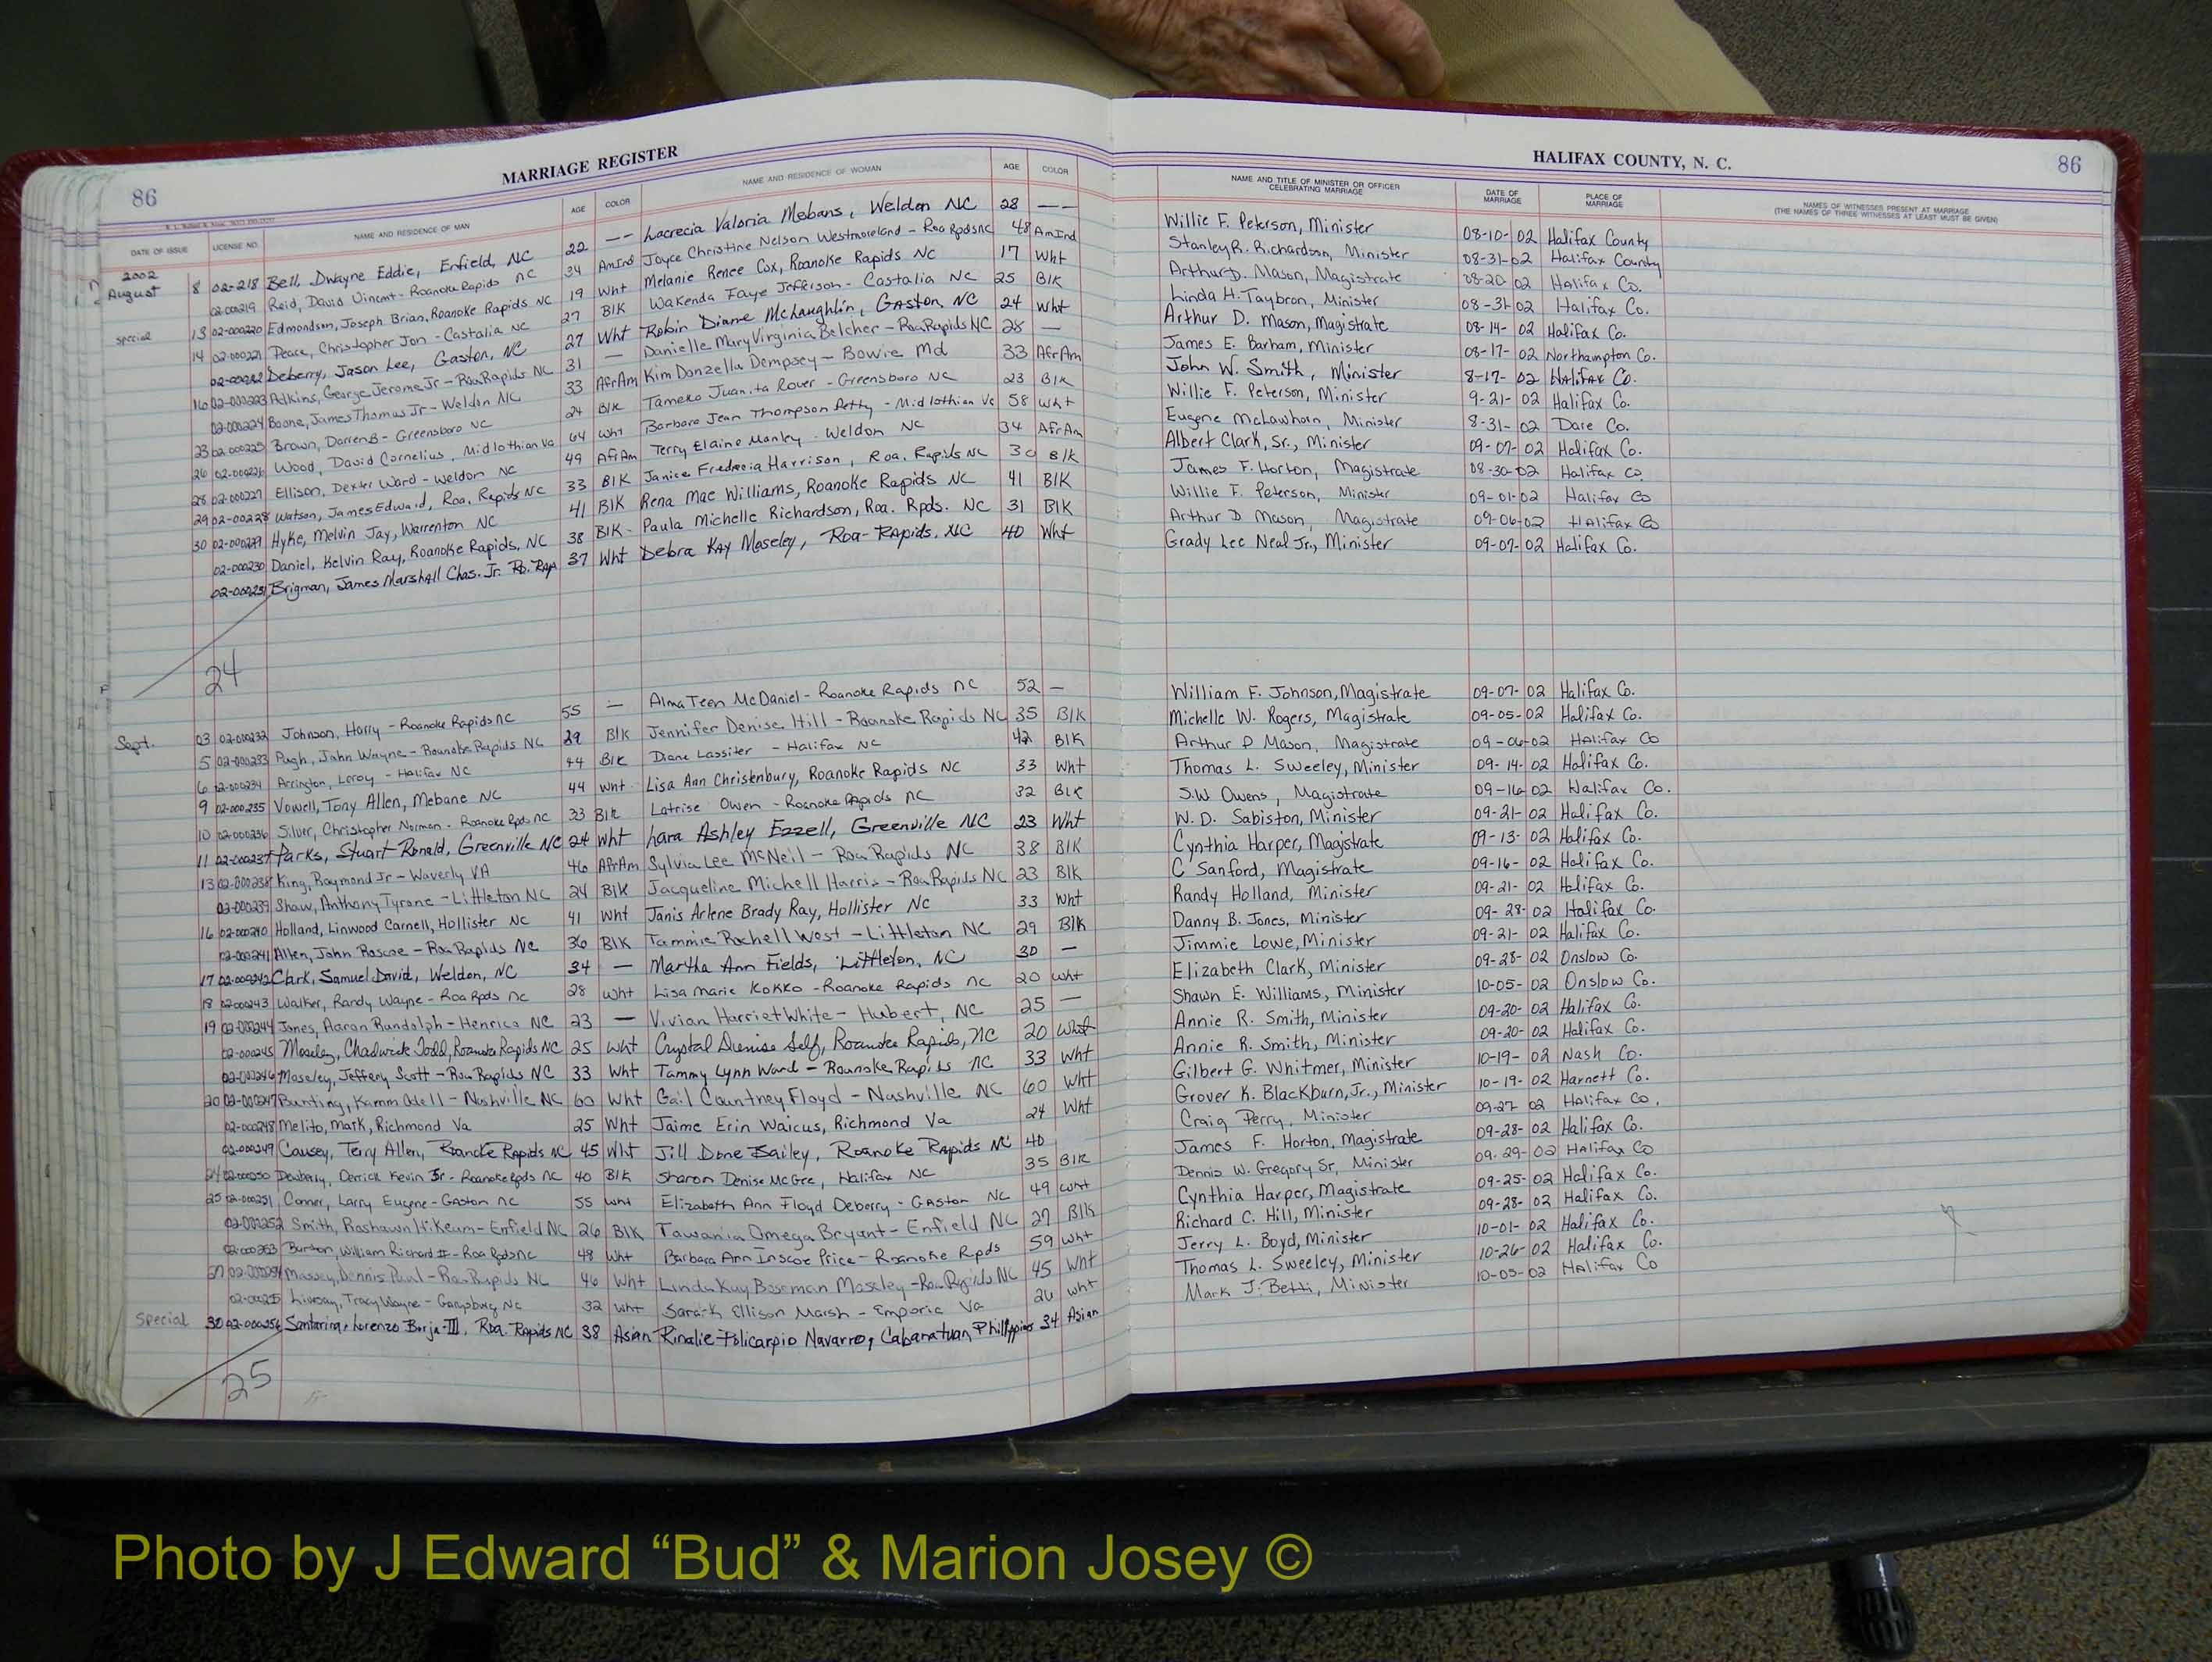 MARRIAGE REGISTER
HALIFAX COUNTY, N. C.
86
86
DATE OF ISSUE LICENSE NO. NAME AND RESIDENCE OF MAN AGE COLOR NAME AND RESIDENCE OF WOMAN AGE COLOR NAME AND TITLE OF MINISTER OR OFFICER CELEBRATING MARRIAGE DATE OF MARRIAGE PLACE OF MARRIAGE NAMES OF WITNESSES PRESENT AT MARRIAGE (THE NAMES OF THREE WITNESSES AT LEAST MUST BE GIVEN)
2002
August 8 02-218 Bell, Dwayne Eddie, Enfield, NC 22 -- Lacrecia Valoria Mebans, Weldon NC 28 -- Willie F. Peterson, Minister 08-10-02 Halifax County
02-00219 Reid, David Vincent - Roanoke Rapids NC 34 AmInd Joyce Christine Nelson Westmoreland - Roa Rpds NC 48 AmInd Stanley R. Richardson, Minister 08-31-02 Halifax County
special 13 02-000220 Edmondson, Joseph Brian, Roanoke Rapids NC 19 Wht Melanie Renee Cox, Roanoke Rapids NC 17 Wht Arthur D. Mason, Magistrate 08-20-02 Halifax Co.
14 02-000221 Peace, Christopher Jon - Castalia NC 27 Blk Wakenda Faye Jefferson - Castalia NC 25 Blk Linda H. Taybron, Minister 08-31-02 Halifax Co.
02-00222 Deberry, Jason Lee, Gaston, NC 27 Wht Robin Diame McLaughlin, Gaston, NC 24 Wht Arthur D. Mason, Magistrate 08-14-02 Halifax Co.
16 02-000223 Adkins, George Jerome Jr - Roa Rapids NC 31 — Danielle Mary Virginia Belcher - Roa Rapids NC 28 — James E. Barham, Minister 08-17-02 Northampton Co.
02-000224 Boone, James Thomas Jr - Weldon NC 33 AfrAm Kim Donzella Dempsey - Bowie Md 33 AfrAm John W. Smith, Minister 8-17-02 Halifax Co.
23 02-000225 Brown, Darren B - Greensboro NC 24 Blk Tameko Juanita Rover - Greensboro NC 23 Blk Willie F. Peterson, Minister 9-21-02 Halifax Co.
26 02-000226 Wood, David Cornelius, Midlothian Va 64 Wht Barbara Jean Thompson Petty - Midlothian Va 58 Wht Eugene McLawhorn, Minister 8-31-02 Dare Co.
28 02-000227 Ellison, Dexter Ward - Weldon NC 49 AfrAm Terry Elaine Manley - Weldon NC 34 AfrAm Albert Clark, Sr., Minister 09-07-02 Halifax Co.
29 02-000228 Watson, James Edward, Roa. Rapids NC 33 Blk Janice Fredrecia Harrison, Roa. Rapids NC 30 Blk James F. Horton, Magistrate 08-30-02 Halifax Co.
30 02-000229 Hyke, Melvin Jay, Warrenton NC 41 Blk Rena Mae Williams, Roanoke Rapids NC 41 Blk Willie F. Peterson, Minister 09-01-02 Halifax Co
02-000230 Daniel, Kelvin Ray, Roanoke Rapids, NC 38 Blk- Paula Michelle Richardson, Roa. Rpds. NC 31 Blk Arthur D Mason, Magistrate 09-06-02 Halifax Co
02-000231 Brigman, James Marshall Chas. Jr. Ro. Rap 37 Wht Debra Kay Moseley, Roa-Rapids. NC 40 Wht Grady Lee Neal Jr., Minister 09-07-02 Halifax Co.
24
Sept. 03 02-000232 Johnson, Harry - Roanoke Rapids NC 55 — Alma Teen McDaniel - Roanoke Rapids NC 52 — William F. Johnson, Magistrate 09-07-02 Halifax Co.
5 02-000233 Pugh, John Wayne - Roanoke Rapids NC 29 Blk Jennifer Denise Hill - Roanoke Rapids NC 35 Blk Michelle W. Rogers, Magistrate 09-05-02 Halifax Co.
6 02-000234 Arrington, Leroy - Halifax NC 44 Blk Diane Lassiter - Halifax NC 42 Blk Arthur D Mason, Magistrate 09-06-02 Halifax Co
9 02-000235 Vowell, Tony Allen, Mebane NC 44 Wht Lisa Ann Christenbury, Roanoke Rapids NC 33 Wht Thomas L. Sweeley, Minister 09-14-02 Halifax Co.
10 02-000236 Silver, Christopher Norman - Roanoke Rpds NC 33 Blk Latrise Owen - Roanoke Rapids NC 32 Blk S.W. Owens, Magistrate 09-16-02 Halifax Co.
11 02-000237 Parks, Stuart Ronald, Greenville NC 24 Wht Lara Ashley Ezzell, Greenville NC 23 Wht W. D. Sabiston, Minister 09-21-02 Halifax Co.
13 02-000238 King, Raymond Jr - Waverly VA 46 AfrAm Sylvia Lee McNeil - Roa Rapids NC 38 Blk Cynthia Harper, Magistrate 09-13-02 Halifax Co.
02-000239 Shaw, Anthony Tyrone - Littleton NC 24 Blk Jacqueline Michell Harris - Roa Rapids NC 23 Blk C Sanford, Magistrate 09-16-02 Halifax Co.
16 02-000240 Holland, Linwood Carnell, Hollister NC 41 Wht Janis Arlene Brady Ray, Hollister NC 33 Wht Randy Holland, Minister 09-21-02 Halifax Co.
02-000241 Allen, John Roscoe - Roa Rapids NC 36 Blk Tammie Rochell West - Littleton NC 29 Blk Danny B. Jones, Minister 09-28-02 Halifax Co.
17 02-000242 Clark, Samuel David, Weldon, NC 34 — Martha Ann Fields, Littleton, NC 30 — Jimmie Lowe, Minister 09-21-02 Halifax Co.
18 02-000243 Walker, Randy Wayne - Roa Rpds NC 28 Wht Lisa Marie Kokko - Roanoke Rapids NC 20 Wht Elizabeth Clark, Minister 09-28-02 Onslow Co.
19 02-000244 Jones, Aaron Randolph - Henrico NC 23 — Vivian Harriet White - Hubert, NC 25 — Shawn E. Williams, Minister 10-05-02 Onslow Co.
02-000245 Moseley, Chadwick Todd, Roanoke Rapids NC 25 Wht Crystal Denise Self, Roanoke Rapids, NC 20 Wht Annie R. Smith, Minister 09-20-02 Halifax Co.
02-000246 Moseley, Jeffery Scott - Roa Rapids NC 33 Wht Tammy Lynn Ward - Roanoke Rapids NC 33 Wht Annie R. Smith, Minister 09-20-02 Halifax Co.
20 02-000247 Bunting, Kamm Odell - Nashville NC 60 Wht Gail Countney Floyd - Nashville NC 60 Wht Gilbert G. Whitmer, Minister 10-19-02 Nash Co.
02-000248 Melito, Mark, Richmond Va 25 Wht Jaime Erin Waicus, Richmond Va 24 Wht Grover K. Blackburn, Jr., Minister 10-19-02 Harnett Co.
02-000249 Causey, Terry Allen, Roanoke Rapids NC 45 Wht Jill Done Bailey, Roanoke Rapids NC 40 Craig Perry, Minister 09-27-02 Halifax Co.
24 02-000250 Dewberry, Derrick Kevin Sr - Roanoke Rpds NC 40 Blk Sharon Denise McGee, Halifax NC 35 Blk James F. Horton, Magistrate 09-28-02 Halifax Co.
25 02-000251 Conner, Larry Eugene - Gaston NC 55 Wht Elizabeth Ann Floyd Deberry - Gaston NC 49 Wht Dennis W. Gregory Sr, Minister 09-29-02 Halifax Co
02-000252 Smith, Rashawn Hikeum - Enfield NC 26 Blk Tawania Omega Bryant - Enfield NC 27 Blk Cynthia Harper, Magistrate 09-25-02 Halifax Co.
02-000253 Burton, William Richard II - Roa Rpds NC 48 Wht Barbara Ann Inscoe Price - Roanoke Rpds 59 Wht Richard C. Hill, Minister 09-28-02 Halifax Co.
27 02-000254 Massey, Dennis Paul - Roa Rapids NC 46 Wht Linda Kay Boseman Moseley - Roa Rapids NC 45 Wht Jerry L. Boyd, Minister 10-01-02 Halifax Co.
02-00255 Livesay, Tracy Wayne - Garysburg NC 32 Wht Sarah Ellison Marsh - Emporia Va 26 Wht Thomas L. Sweeley, Minister 10-26-02 Halifax Co.
Special 30 02-000256 Santarina, Lorenzo Borja III, Roa. Rapids NC 38 Asian Rinalie Policarpio Navarro, Cabanatuan, Phillppines 34 Asian Mark J. Betti, Minister 10-05-02 Halifax Co
25
Photo by J Edward “Bud” & Marion Josey ©